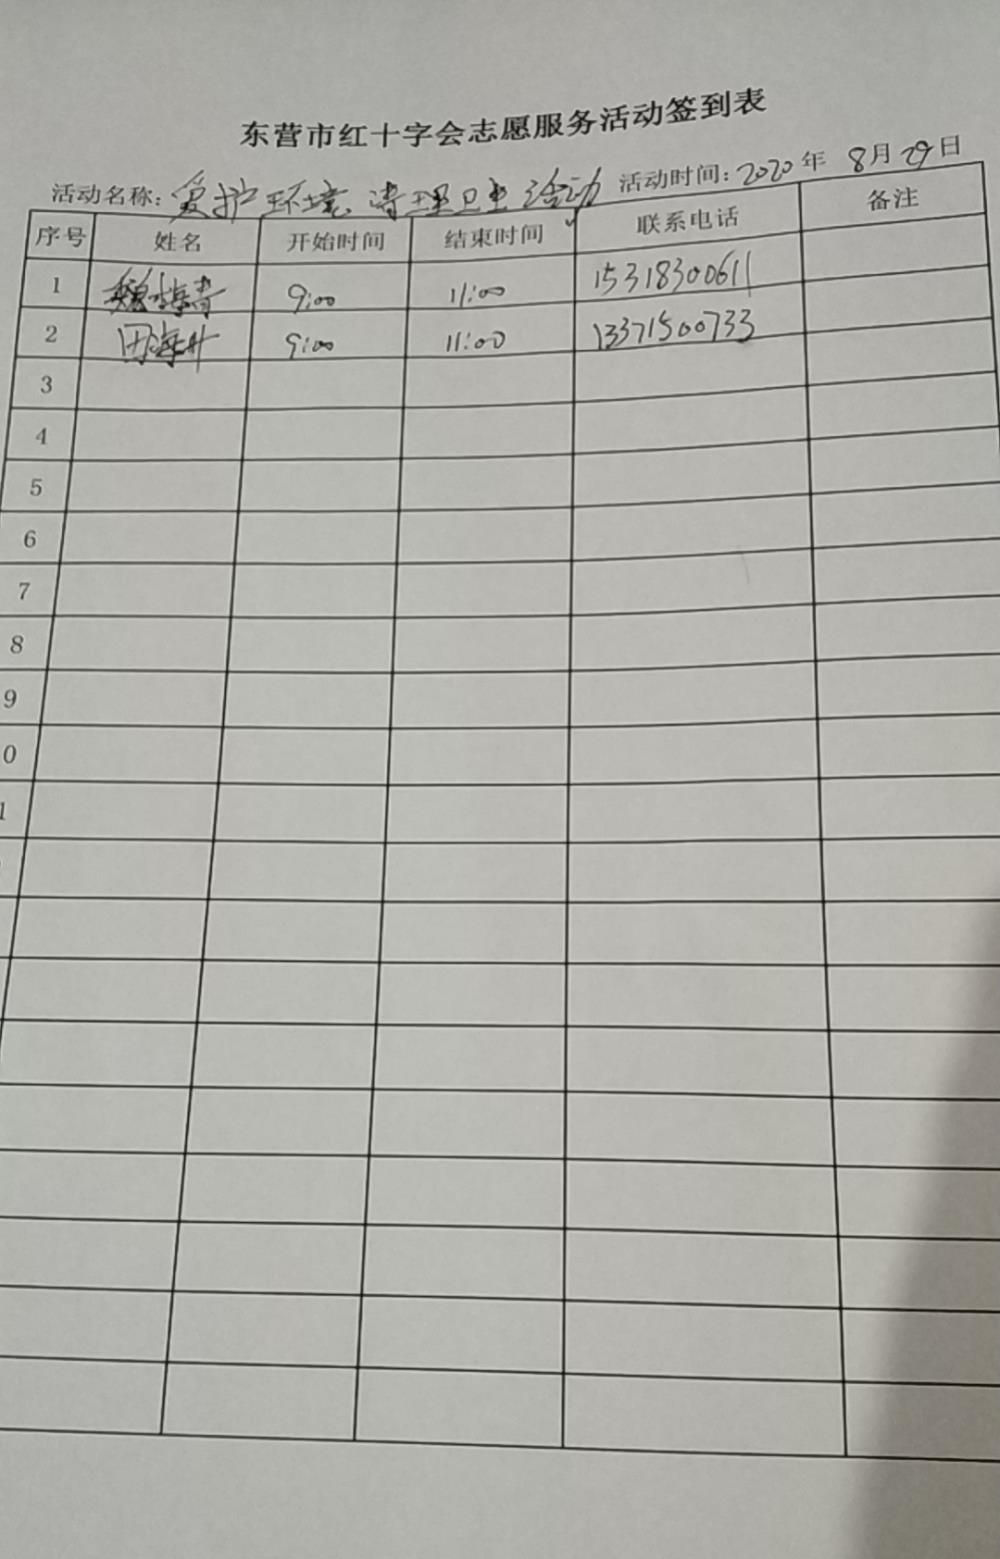 东营市红十字会志愿服务活动签到表
活动名称: 爱护环境、清理卫生活动 活动时间: 2020 年 8月 29日
序号 姓名 开始时间 结束时间 联系电话 备注
1 9:00 11:00 15318300611
2 田海升 9:00 11:00 13371500733
3
4
5
6
7
8
9
0
1